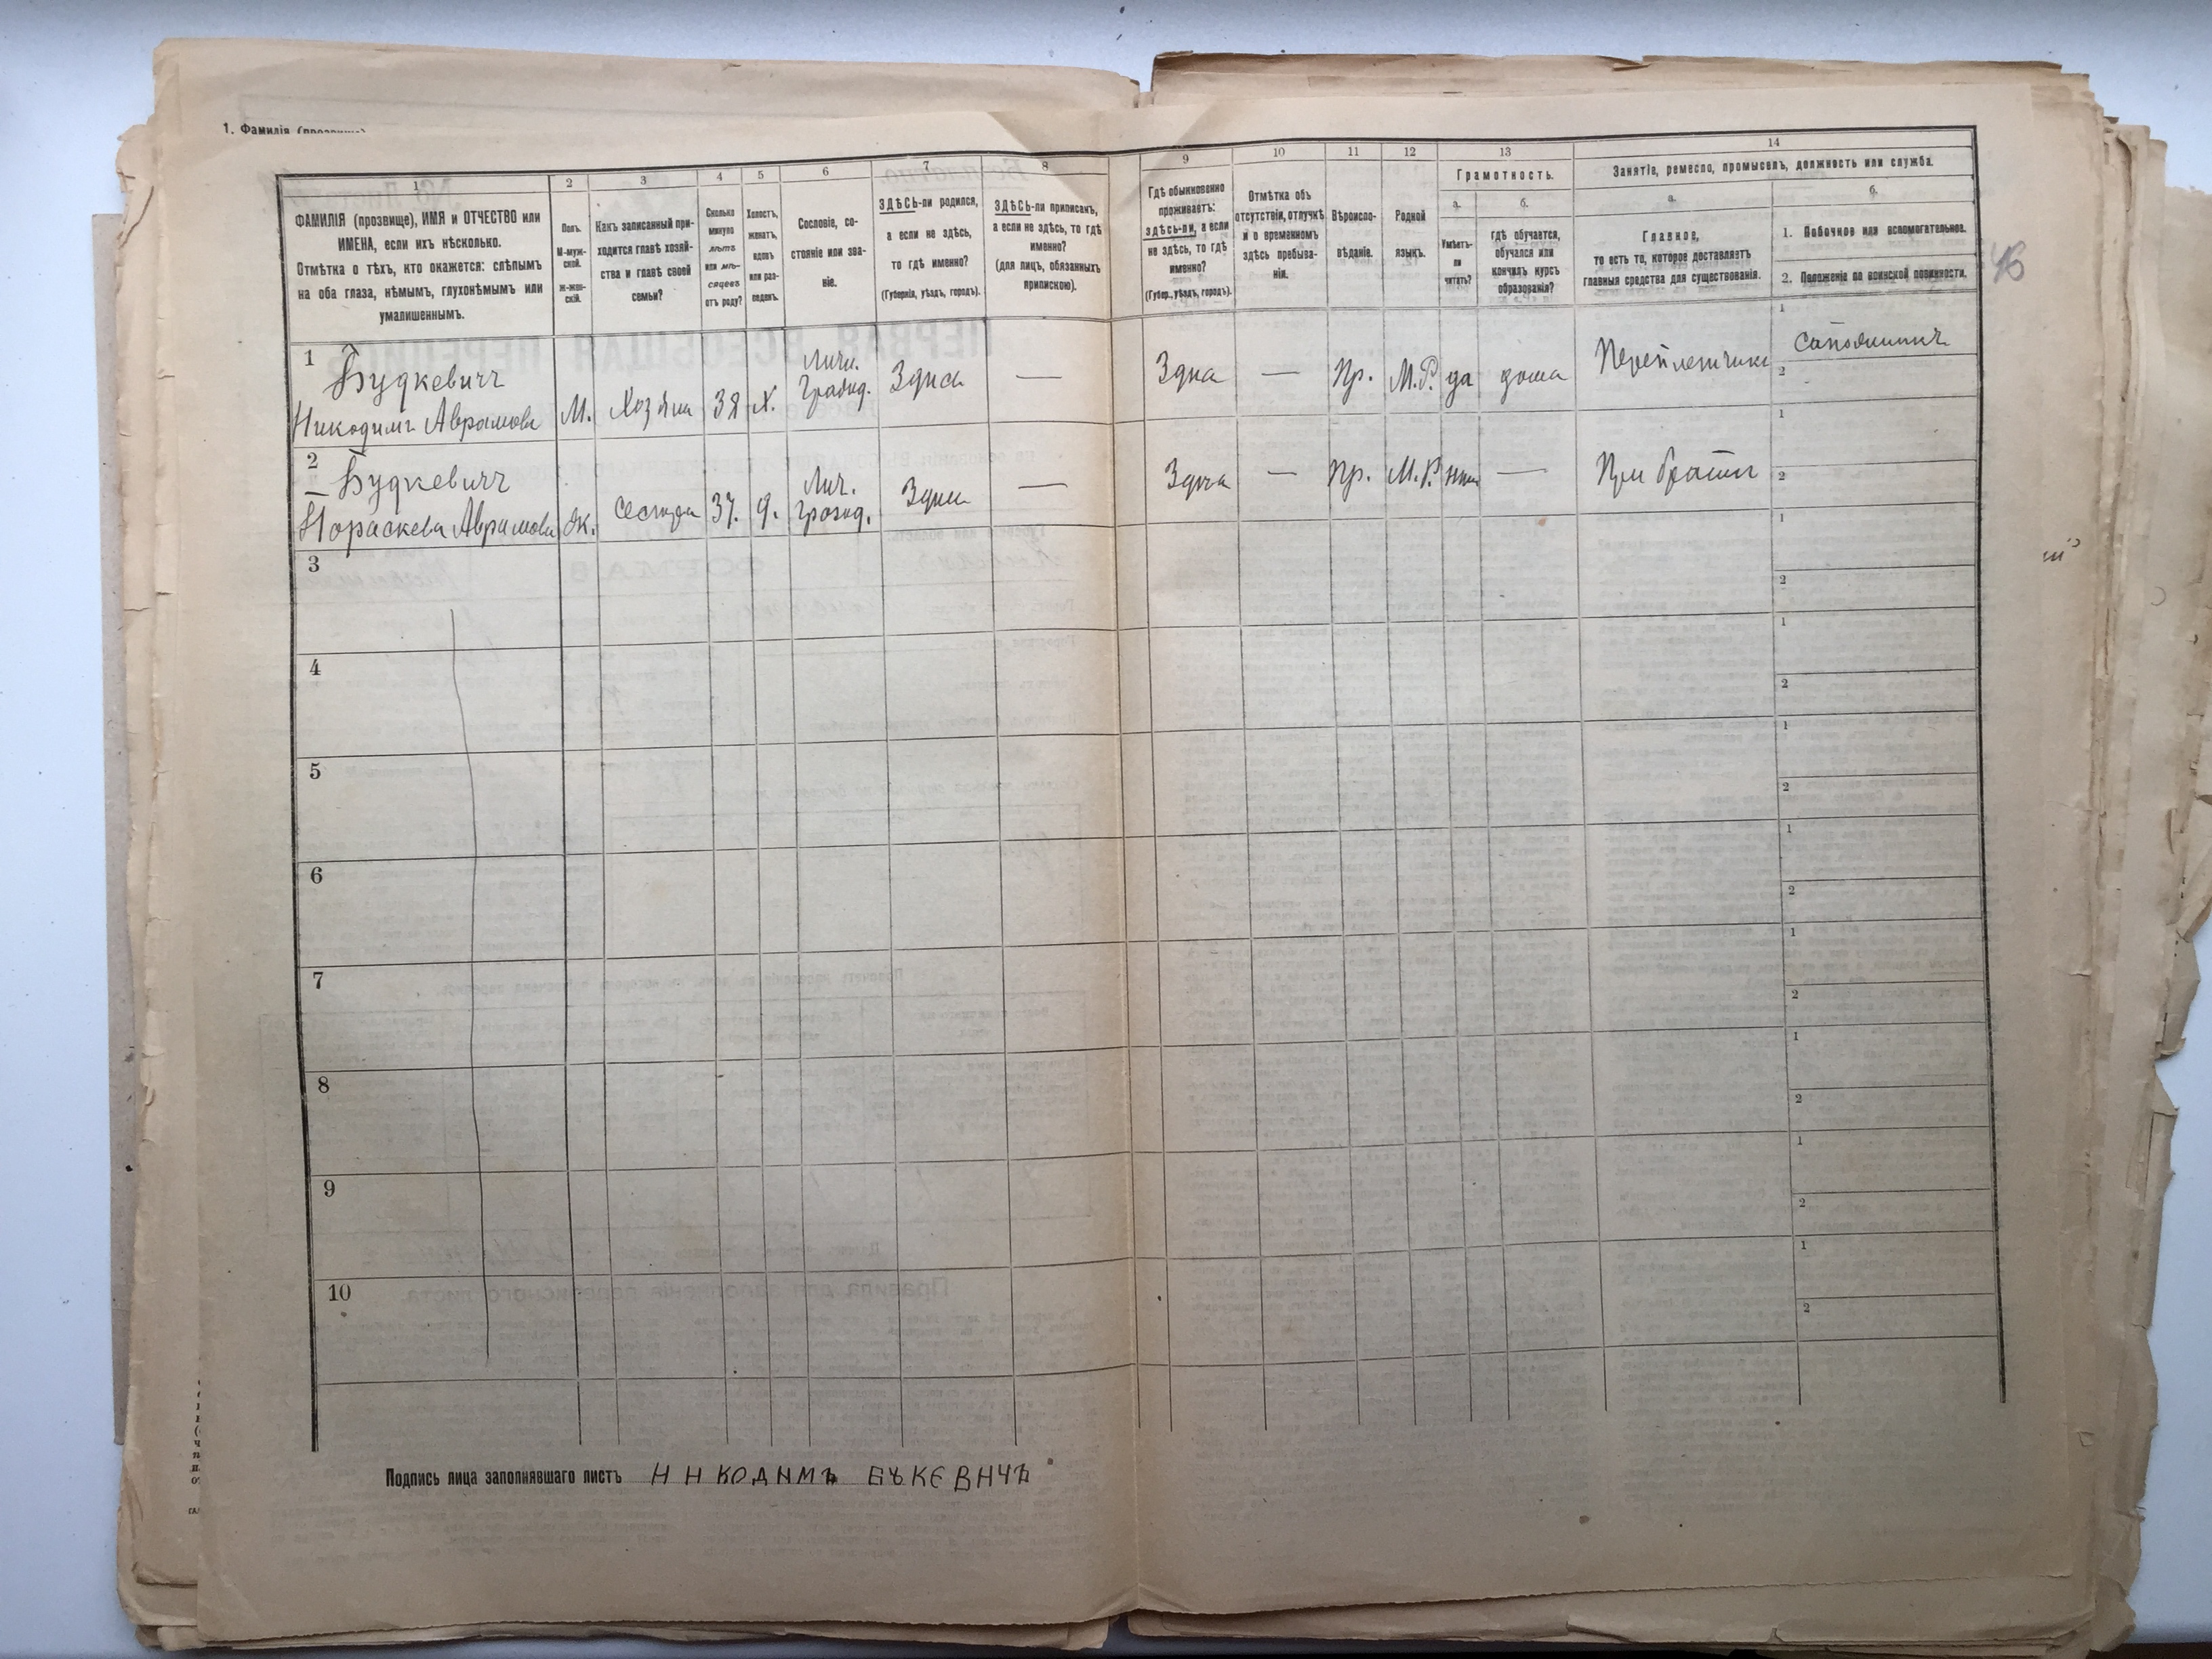 1. Фамилія (прозвище)
1
ФАМИЛІЯ (прозвище), ИМЯ и ОТЧЕСТВО или
ИМЕНА, если ихъ нѣсколько.
Отмѣтка о тѣхъ, кто окажется: слѣпымъ
на оба глаза, нѣмымъ, глухонѣмымъ или
умалишеннымъ.
2
Полъ.
М-муж-
ской.
Ж-жен-
скій.
3
Какъ записанный при-
ходится главѣ хозяй-
ства и главѣ своей
семьи?
4
Сколько
минуло
лѣтъ
или мѣ-
сяцевъ
отъ роду?
5
Холостъ,
женатъ,
вдовъ
или раз-
веденъ.
6
Сословіе, со-
стояніе или зва-
ніе.
7
ЗДѢСЬ-ли родился,
а если не здѣсь,
то гдѣ именно?
(Губернія, уѣздъ, городъ).
8
ЗДѢСЬ-ли приписанъ,
а если не здѣсь, то гдѣ
именно?
(для лицъ, обязанныхъ
припискою).
9
Гдѣ обыкновенно
проживаетъ:
здѣсь-ли, а если
не здѣсь, то гдѣ
именно?
(Губер., уѣздъ, городъ).
10
Отмѣтка объ
отсутствіи, отлучкѣ
и о временномъ
здѣсь пребыва-
ніи.
11
Вѣроиспо-
вѣданіе.
12
Родной
языкъ.
13
Грамотность.
а.
Умѣетъ-
ли
читать?
б.
гдѣ обучается,
обучался или
кончилъ курсъ
образованія?
14
Занятіе, ремесло, промыселъ, должность или служба.
а.
Главное,
то есть то, которое доставляетъ
главныя средства для существованія.
б.
1. Побочное или вспомогательное.
2. Положеніе по воинской повинности.
1
Будкевичъ
Никодимъ Аврамовъ
М.
Хозяин
38
Х.
Личн.
Гражд.
Здпсь
—
Здпсь
—
Пр.
М.Р.
да
дома
Переплетчикъ
1
Сапожникъ
2
2
Будкевичъ
Пораскева Аврамова
Ж.
Сестра
37.
д.
Лич.
гражд.
Здпсь
—
Здпсь
—
Пр.
М.Р.
—
При братѣ
1
2
3
1
2
4
1
2
5
1
2
6
1
2
7
1
2
8
1
2
9
1
2
10
1
2
Подпись лица заполнявшаго листъ НИКОДИМЪ БЪКЕВИЧЪ